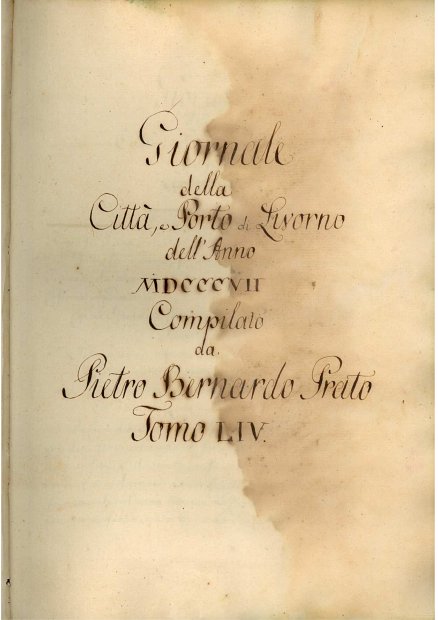 Giornale
della
Città, e Porto di Livorno
dell'Anno
MDCCCVII
Compilato
da
Pietro Bernardo Prato
Tomo LIV.